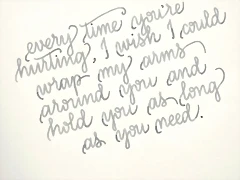 every time you're
hurting, I wish I could
wrap my arms
around you and
hold you as long
as you need.